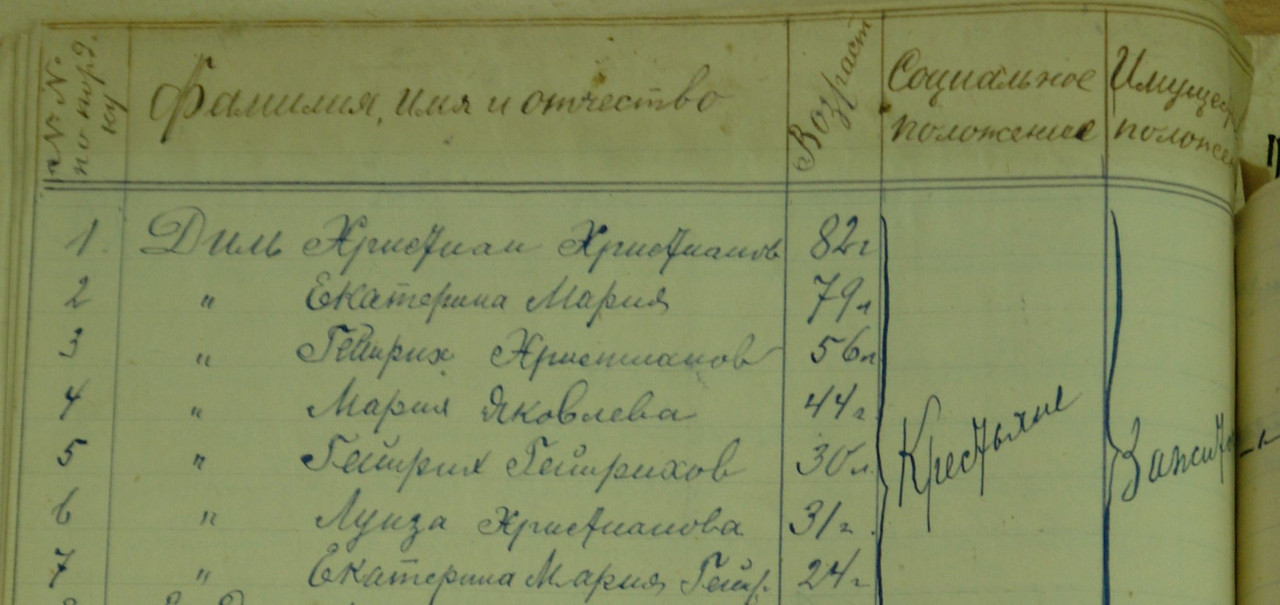 № № по поряд- ку
Фамилия, имя и отчество
Возраст
Социальное положение
Имущес положе
1. Диль Христиан Христианов 82 г
2 " Екатерина Мария 79 л
3 " Гейнрих Христианов 56 л
4 " Мария Яковлева 44 г
5 " Гейнрих Гейнрихов 30 л
6 " Луиза Христианова 31 г.
7 " Екатерина Мария Гейнр. 24 г
Крестьяне
Зажит